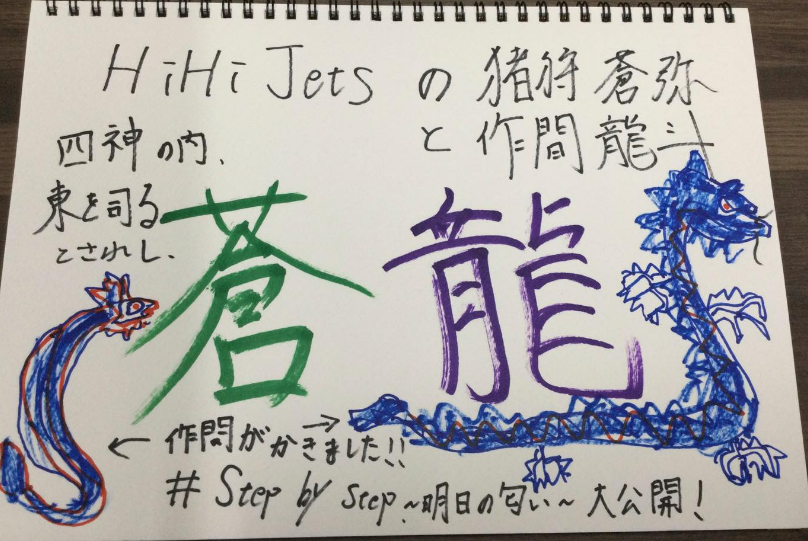 HiHi Jets の 猪狩 蒼弥
と 作間 龍斗
四神の内、
東を司る
とされし、
蒼龍
← 作間がかきました!! →
# Step by Step ~明日の匂い~ 大公開!